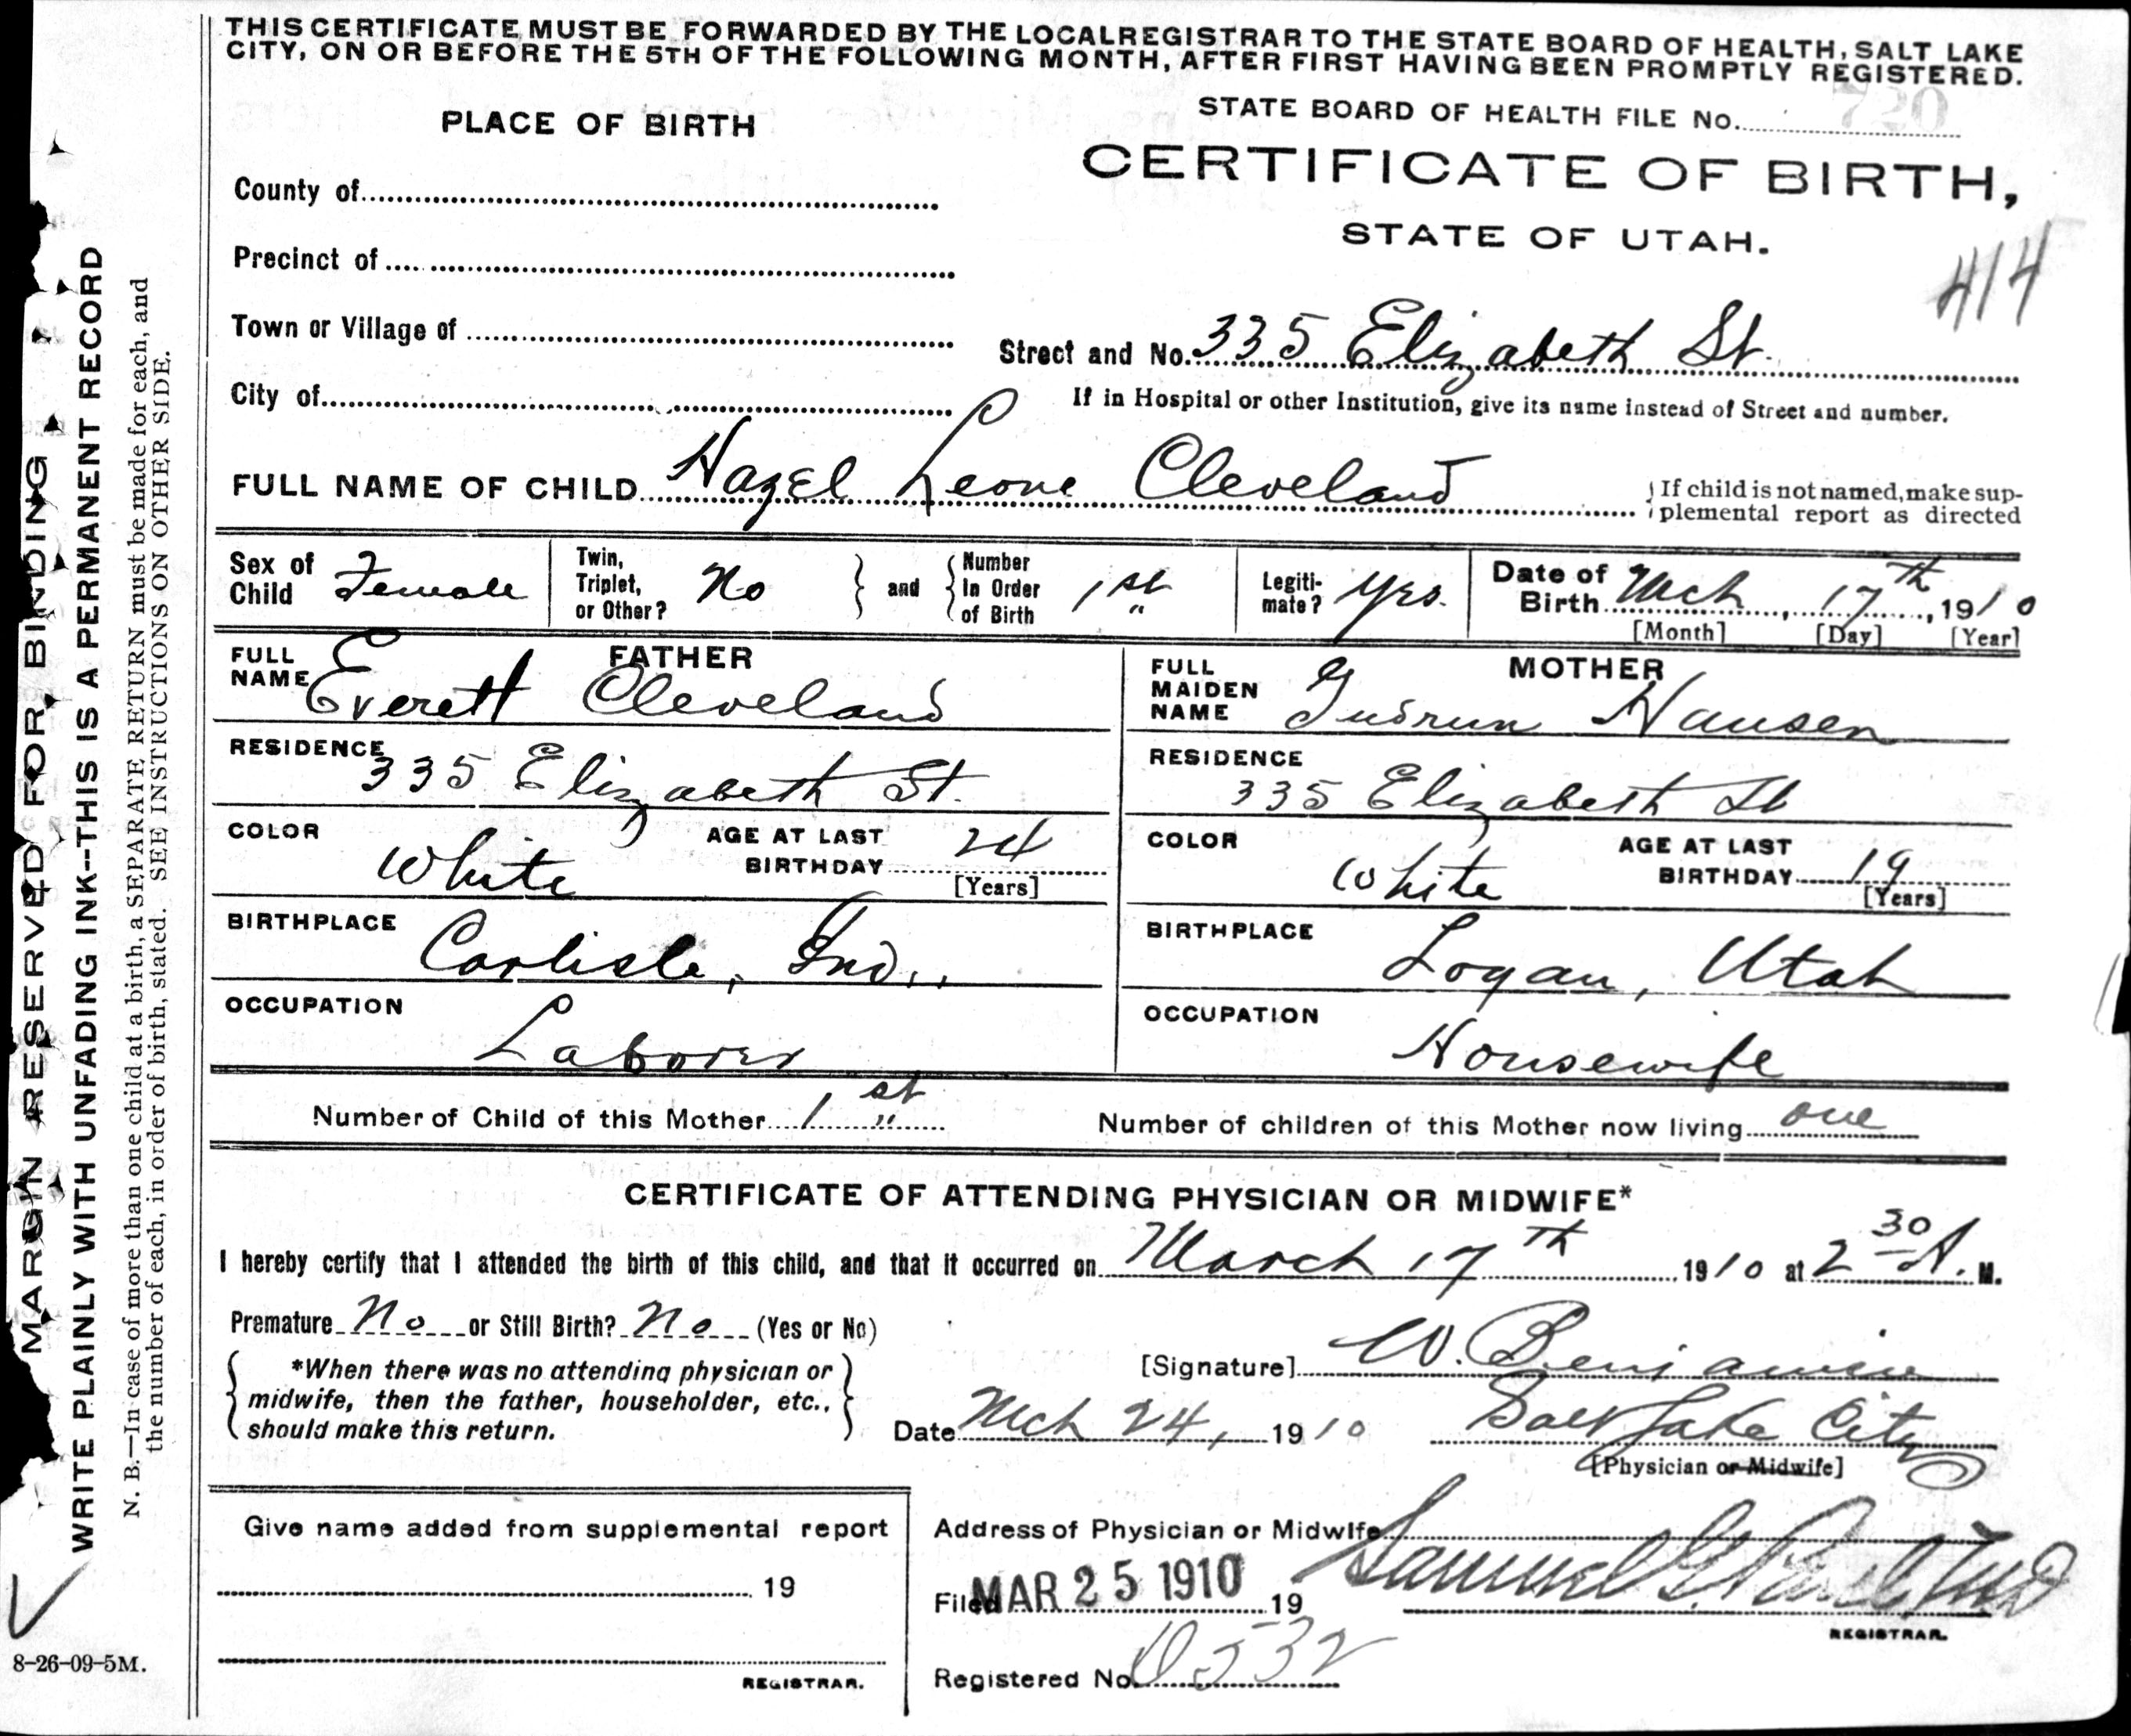 THIS CERTIFICATE MUST BE FORWARDED BY THE LOCAL REGISTRAR TO THE STATE BOARD OF HEALTH, SALT LAKE
CITY, ON OR BEFORE THE 5TH OF THE FOLLOWING MONTH, AFTER FIRST HAVING BEEN PROMPTLY REGISTERED.
PLACE OF BIRTH
STATE BOARD OF HEALTH FILE No. 720
CERTIFICATE OF BIRTH,
STATE OF UTAH.
414
County of
Precinct of
Town or Village of
Street and No. 335 Elizabeth St.
City of
If in Hospital or other Institution, give its name instead of Street and number.
FULL NAME OF CHILD Hazel Leone Cleveland
If child is not named, make sup-
plemental report as directed
Sex of Child Female
Twin, Triplet, or Other? No
and Number In Order of Birth 1st
Legiti-mate? Yes.
Date of Birth Mch 17th, 1910
[Month] [Day] [Year]
FATHER
FULL NAME Everett Cleveland
RESIDENCE 335 Elizabeth St.
COLOR White
AGE AT LAST BIRTHDAY 24
[Years]
BIRTHPLACE Carlisle, Ind.
OCCUPATION Laborer
MOTHER
FULL MAIDEN NAME Gudrun Hansen
RESIDENCE 335 Elizabeth St
COLOR White
AGE AT LAST BIRTHDAY 19
[Years]
BIRTHPLACE Logan, Utah
OCCUPATION Housewife
Number of Child of this Mother 1st
Number of children of this Mother now living one
CERTIFICATE OF ATTENDING PHYSICIAN OR MIDWIFE*
I hereby certify that I attended the birth of this child, and that it occurred on March 17th 1910 at 2 30 A. M.
Premature No or Still Birth? No (Yes or No)
*When there was no attending physician or
midwife, then the father, householder, etc.,
should make this return.
[Signature] W. Benjamin
Date Mch 24, 1910
Salt Lake City
[Physician or Midwife]
Give name added from supplemental report
19
REGISTRAR.
Address of Physician or Midwife
Filed MAR 25 1910 19
Samuel G. Paul MD
REGISTRAR.
Registered No. D532
MARGIN RESERVED FOR BINDING
WRITE PLAINLY WITH UNFADING INK--THIS IS A PERMANENT RECORD
N. B.—In case of more than one child at a birth, a SEPARATE RETURN must be made for each, and
the number of each, in order of birth, stated. SEE INSTRUCTIONS ON OTHER SIDE.
8-26-09-5M.